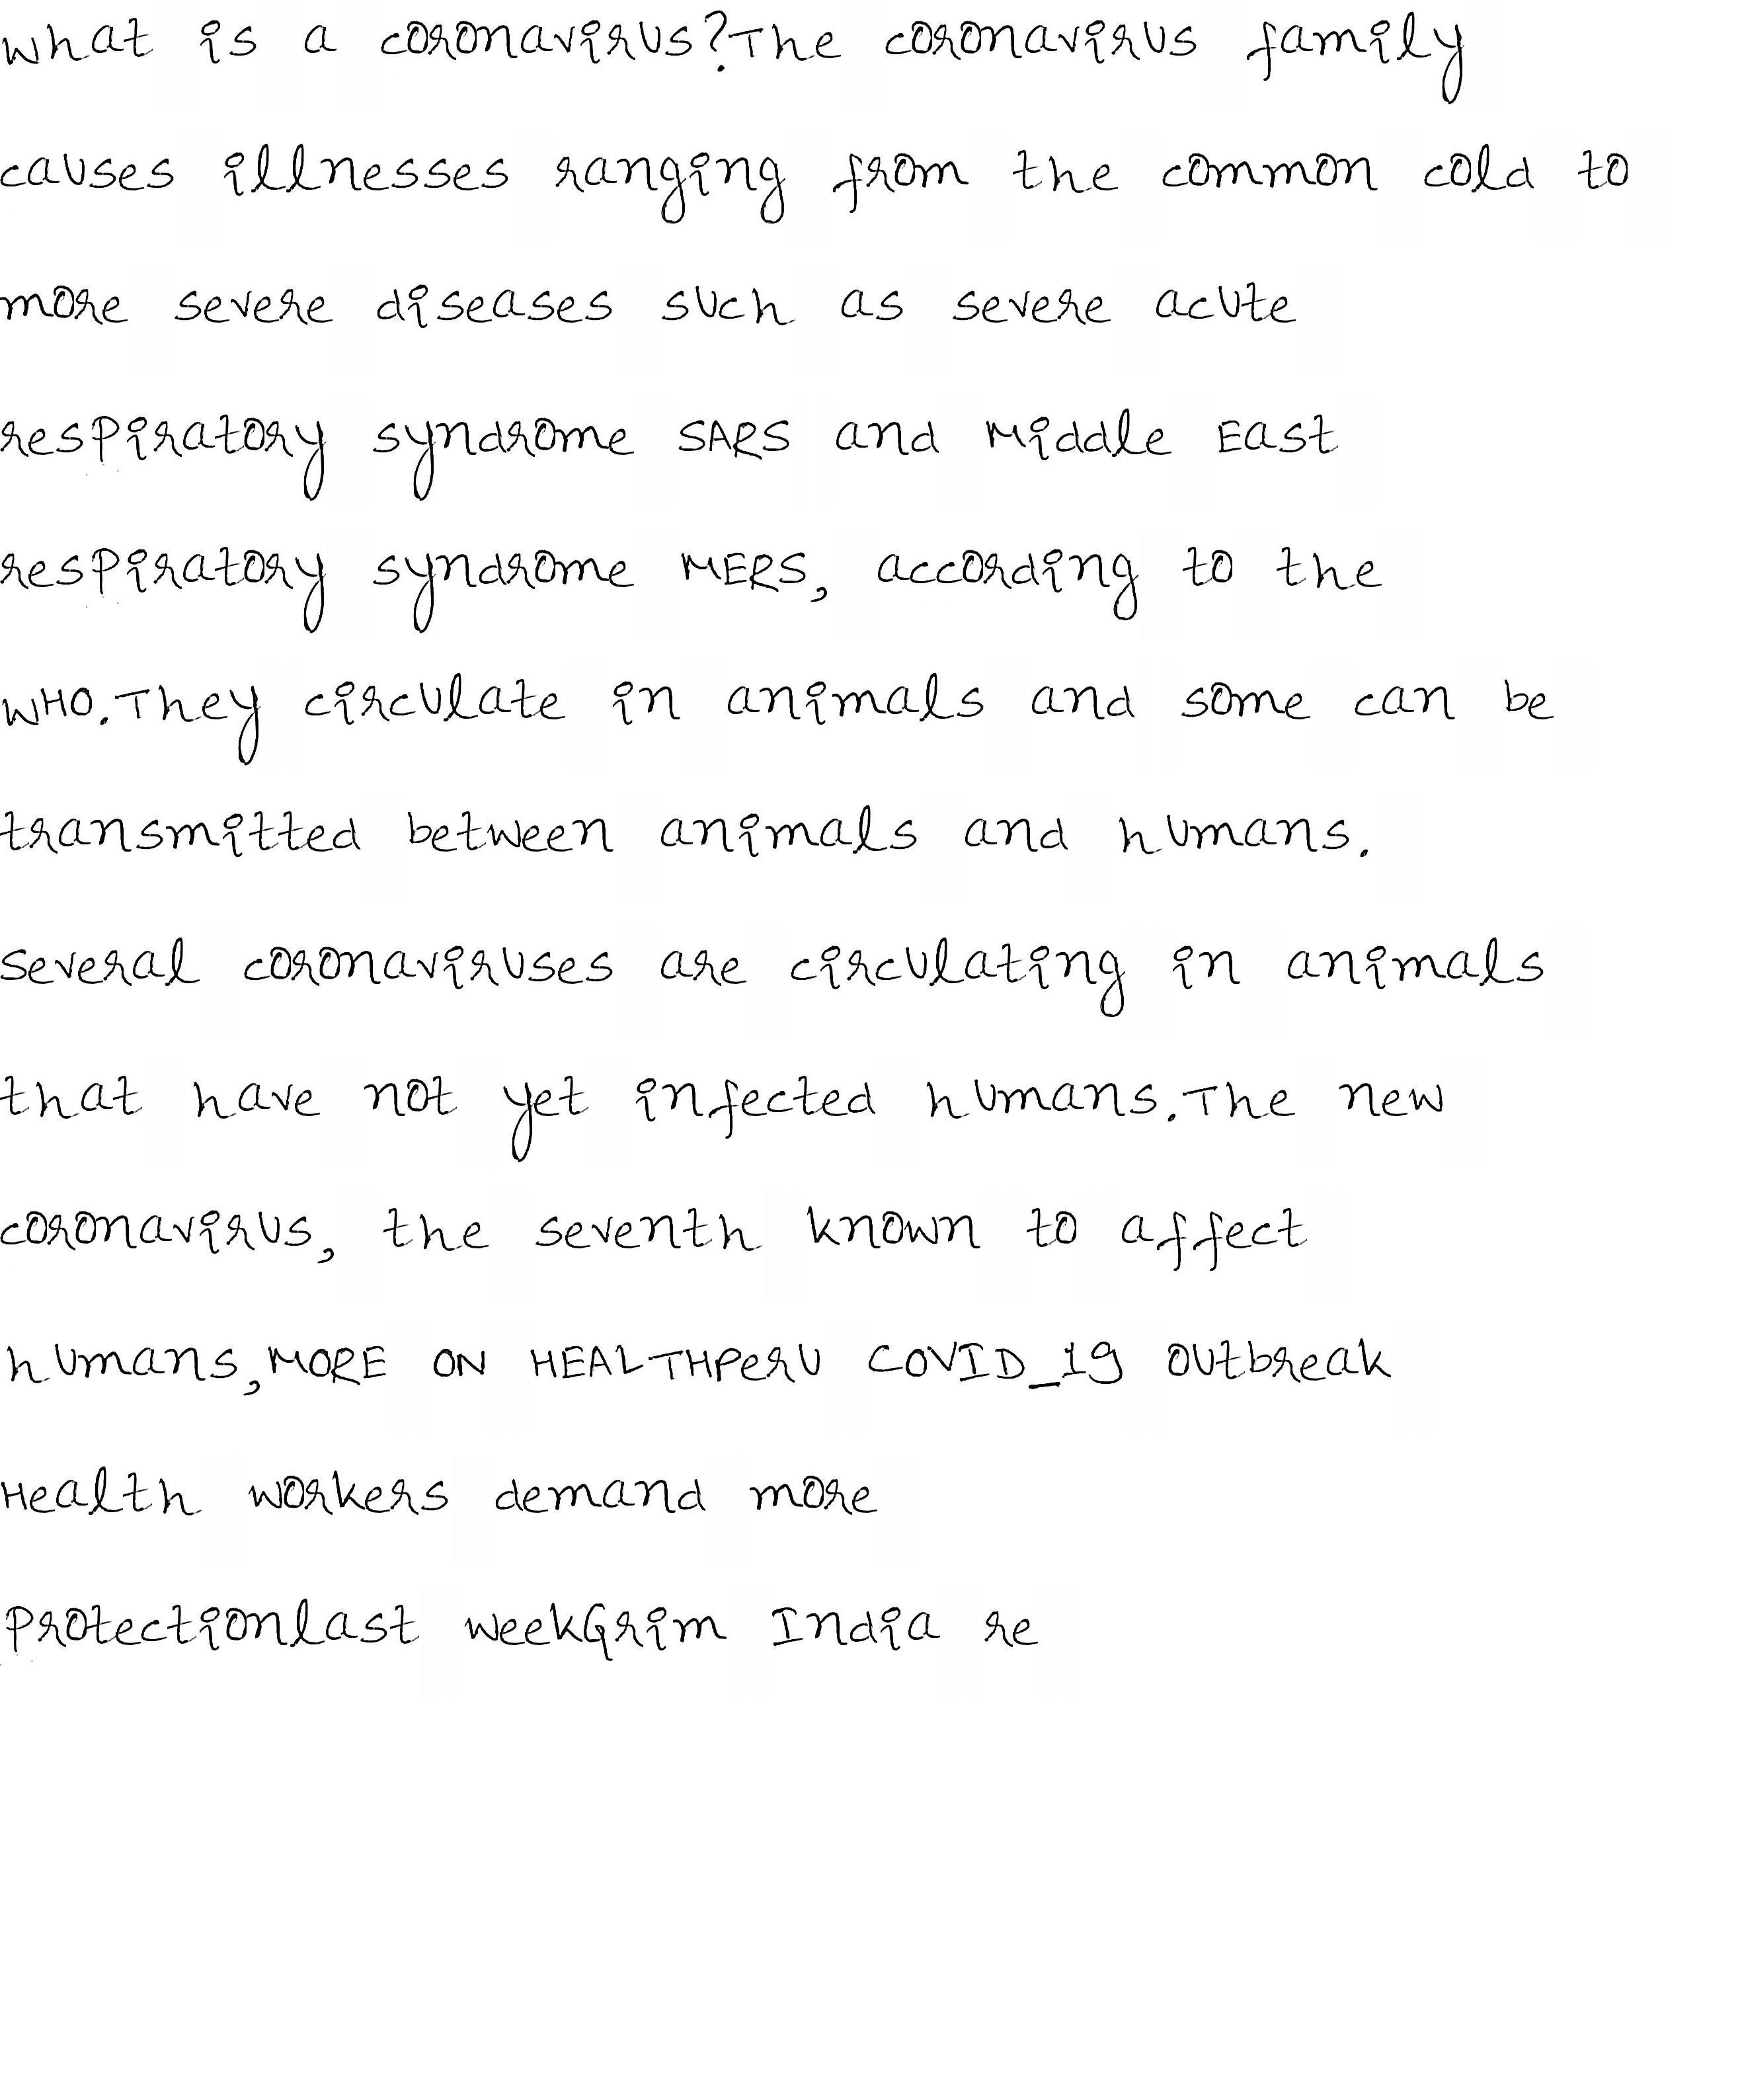 What is a coronavirus?The coronavirus family
causes illnesses ranging from the common cold to
more severe diseases such as severe acute
respiratory syndrome SARS and Middle East
respiratory syndrome MERS, according to the
WHO.They circulate in animals and some can be
transmitted between animals and humans.
Several coronaviruses are circulating in animals
that have not yet infected humans.The new
coronavirus, the seventh known to affect
humans,MORE ON HEALTHPeru COVID_19 outbreak
Health workers demand more
Protectionlast weekGrim India re